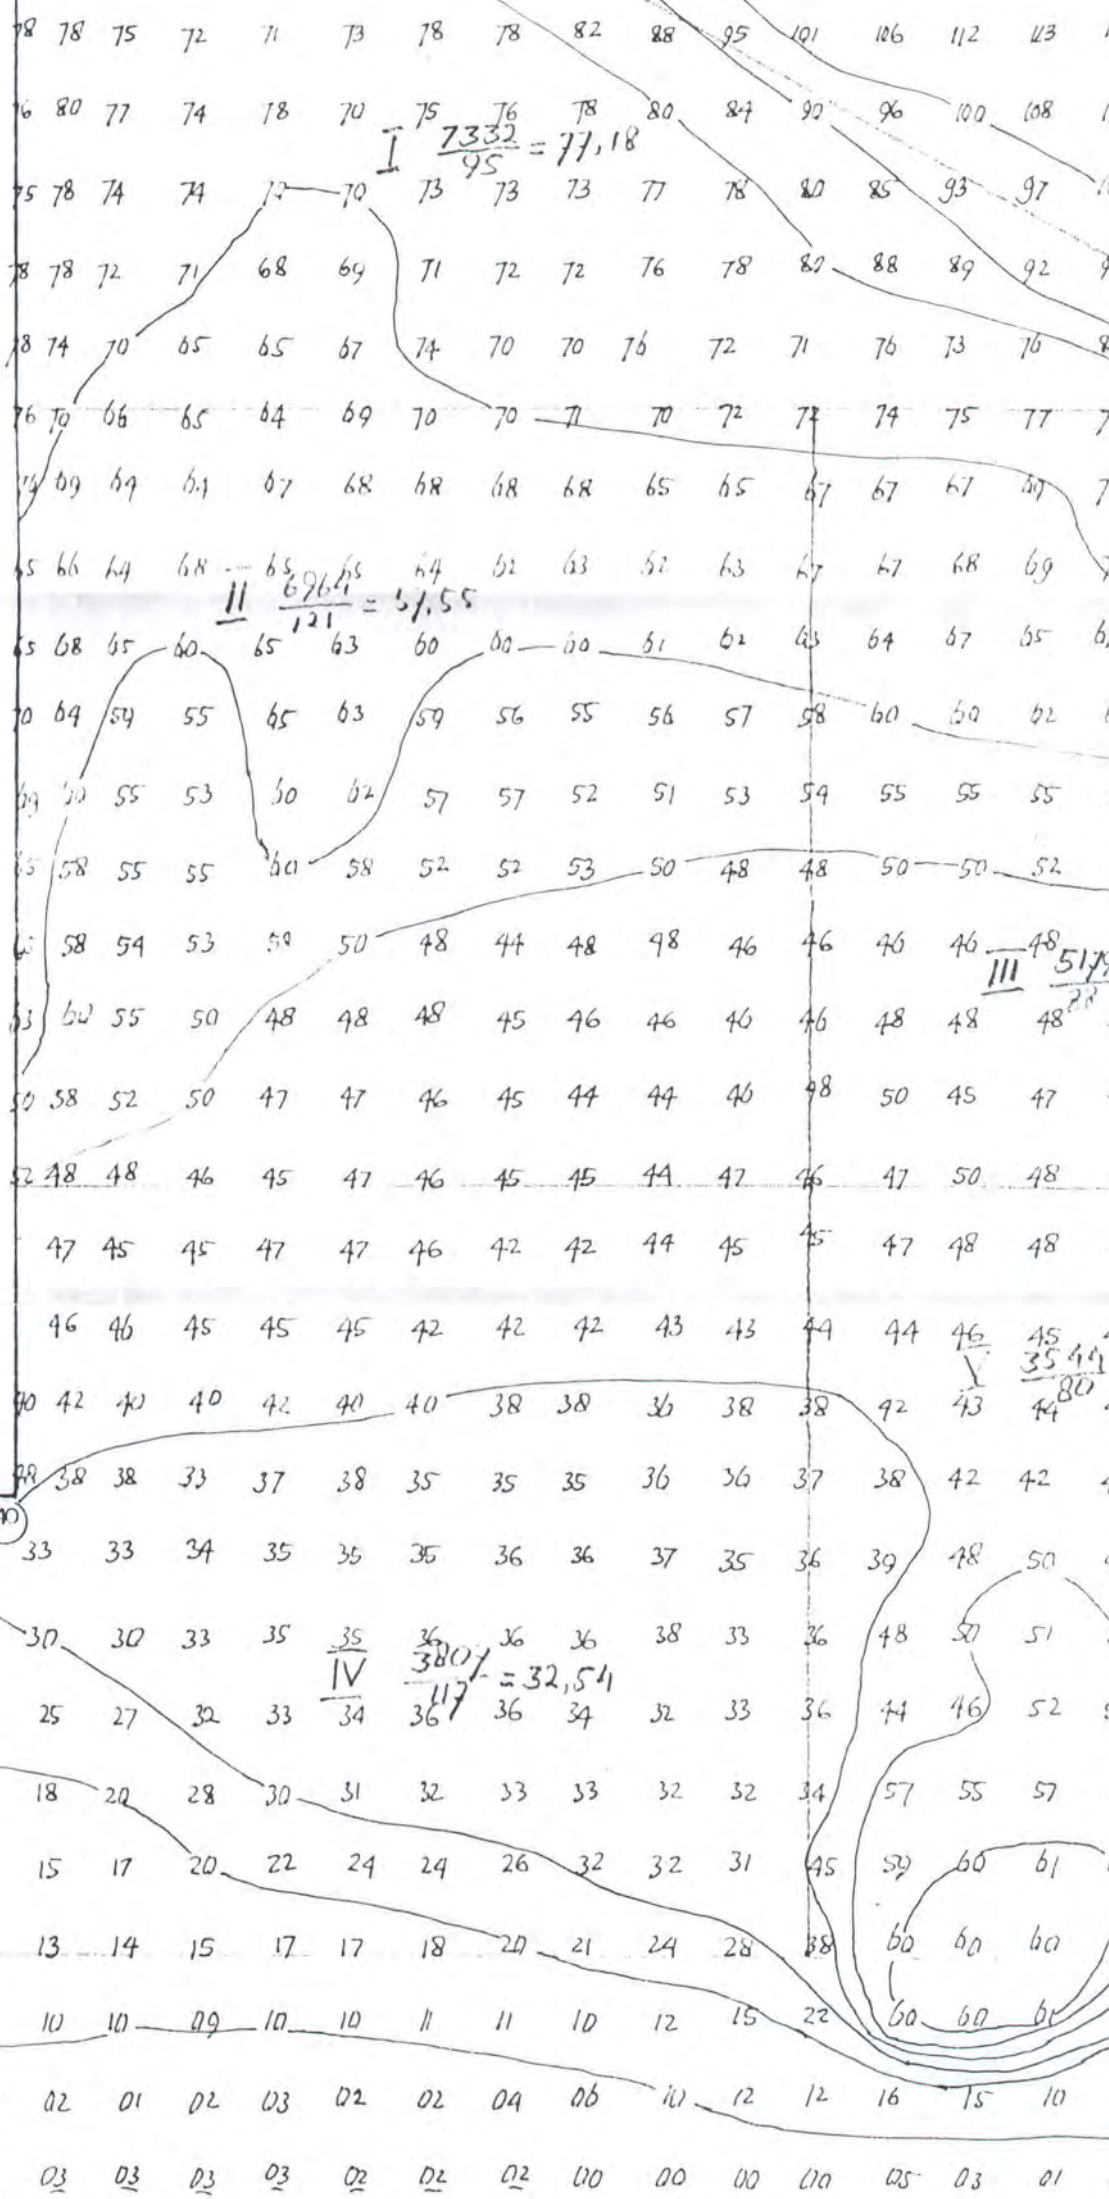 78 78 75 72 71 73 78 78 82 88 95 101 106 112 113
76 80 77 74 78 70 75 76 78 80 84 90 96 100 108
I 7332/95 = 77,18
75 78 74 74 70 70 73 73 73 77 78 80 85 93 97
78 78 72 71 68 69 71 72 72 76 78 80 88 89 92
78 74 70 65 65 67 74 70 70 76 72 71 76 73 76
76 70 66 65 64 69 70 70 71 70 72 72 74 75 77
69 64 64 67 68 68 68 68 65 65 67 67 67 69
65 66 64 68 65 65 64 62 63 62 63 67 67 68 69
II 6964/121 = 57,55
65 68 65 60 65 63 60 60 60 61 62 63 64 67 65
70 64 59 55 65 63 59 56 55 56 57 58 60 60 62
69 60 55 53 60 62 57 57 52 51 53 54 55 55 55
65 58 55 55 60 58 52 52 53 50 48 48 50 50 52
58 54 53 50 50 48 44 48 48 46 46 46 46 48
III 5179
63 60 55 50 48 48 48 45 46 46 46 46 48 48 48
50 58 52 50 47 47 46 45 44 44 46 48 50 45 47
52 48 48 46 45 47 46 45 45 44 47 46 47 50 48
47 45 45 47 47 46 42 42 44 45 45 47 48 48
46 46 45 45 45 42 42 42 43 43 44 44 46 45
V 3544/80
40 42 40 40 42 40 40 38 38 36 38 38 42 43 44
38 38 33 37 38 35 35 35 36 36 37 38 42 42
40
33 33 34 35 35 35 36 36 37 35 36 39 48 50
30 30 33 35 35 36 36 36 38 33 36 48 50 51
IV 3807/117 = 32,54
25 27 32 33 34 36 36 34 32 33 36 44 46 52
18 20 28 30 31 32 33 33 32 32 34 57 55 57
15 17 20 22 24 24 26 32 32 31 45 59 60 61
13 14 15 17 17 18 20 21 24 28 38 60 60 60
10 10 09 10 10 11 11 10 12 15 22 60 60 61
02 01 02 03 02 02 04 06 10 12 12 16 15 10
03 03 03 03 02 02 02 00 00 00 00 05 03 01